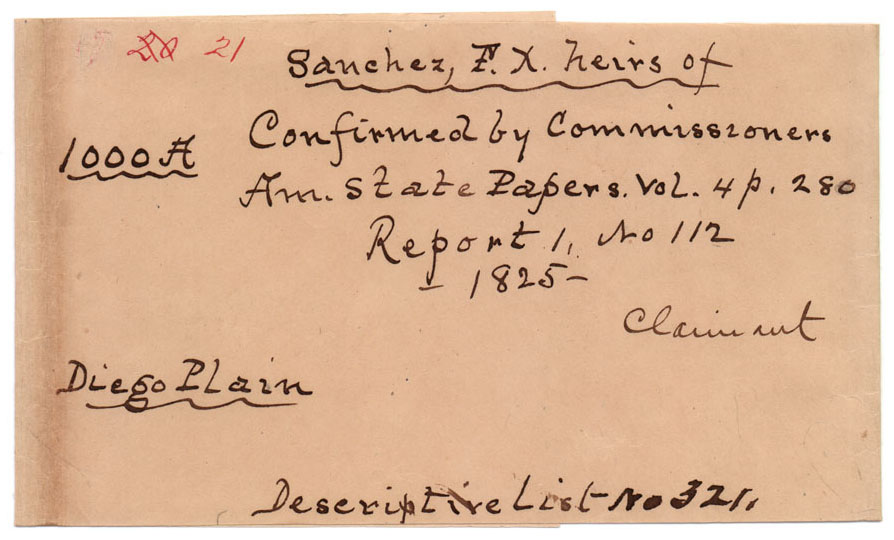 21
Sanchez, F. X. heirs of
1000 A
Confirmed by Commissioners
Am. State Papers. Vol. 4 p. 280
Report 1, No 112
– 1825 –
Claimant
Diego Plain
Descriptive List No 321,